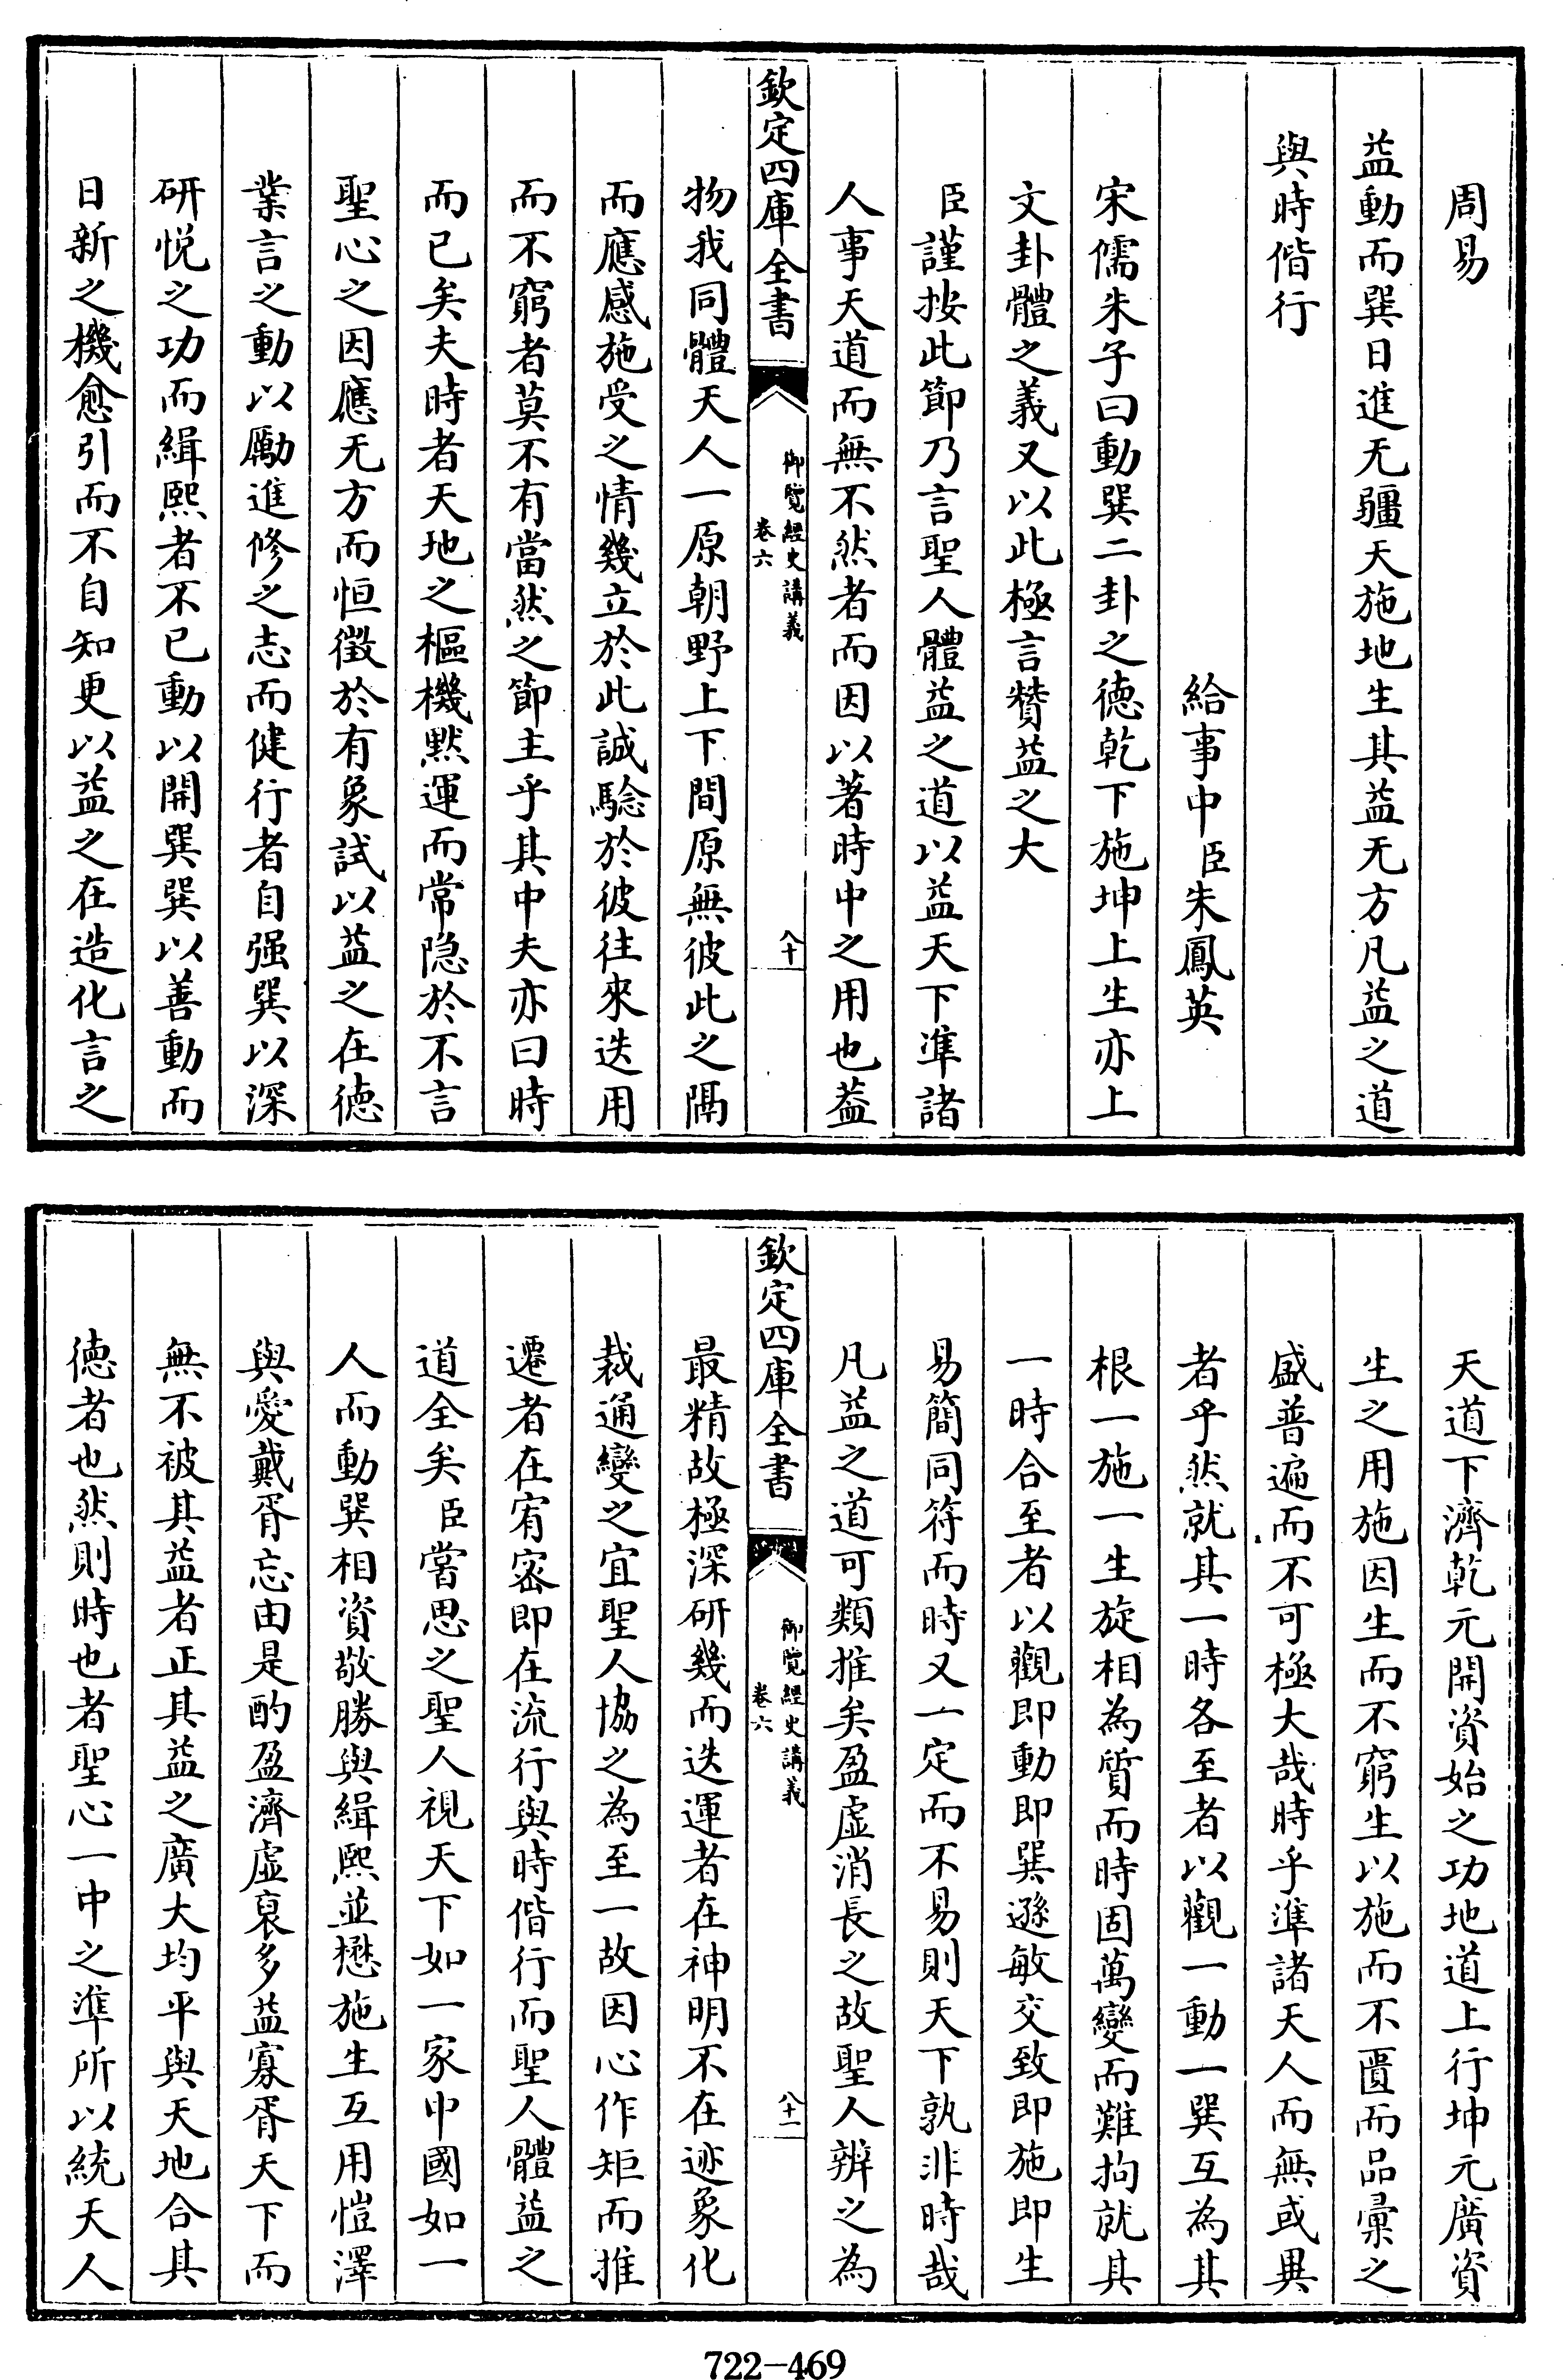 周易
益動而巽日進无疆天施地生其益无方凡益之道
與時偕行
給事中臣朱鳳英
宋儒朱子曰動巽二卦之德乾下施坤上生亦上
文卦體之義又以此極言贊益之大
臣謹按此節乃言聖人體益之道以益天下準諸
人事天道而無不然者而因以著時中之用也蓋
欽定四庫全書
御覽經史講義
卷六
八十
物我同體天人一原朝野上下間原無彼此之隔
而應感施受之情幾立於此誠騐於彼往來迭用
而不窮者莫不有當然之節主乎其中夫亦曰時
而已矣夫時者天地之樞機黙運而常隐於不言
聖心之因應无方而恒徵於有象試以益之在德
業言之動以勵進修之志而健行者自强巽以深
研悦之功而緝熙者不已動以開巽巽以善動而
日新之機愈引而不自知更以益之在造化言之
天道下濟乾元開資始之功地道上行坤元廣資
生之用施因生而不窮生以施而不匱而品彙之
盛普遍而不可極大哉時乎準諸天人而無或異
者乎然就其一時各至者以觀一動一巽互為其
根一施一生旋相為質而時固萬變而難拘就其
一時合至者以觀即動即巽遜敏交致即施即生
易簡同符而時又一定而不易則天下孰非時哉
凡益之道可類推矣盈虚消長之故聖人辨之為
欽定四庫全書
御覽經史講義
卷六
八十一
最精故極深研幾而迭運者在神明不在迹象化
裁通變之宜聖人協之為至一故因心作矩而推
遷者在宥密即在流行與時偕行而聖人體益之
道全矣臣嘗思之聖人視天下如一家中國如一
人而動巽相資敬勝與緝熙並懋施生互用愷澤
與愛戴胥忘由是酌盈濟虚裒多益寡胥天下而
無不被其益者正其益之廣大均平與天地合其
德者也然則時也者聖心一中之準所以統天人
722-469